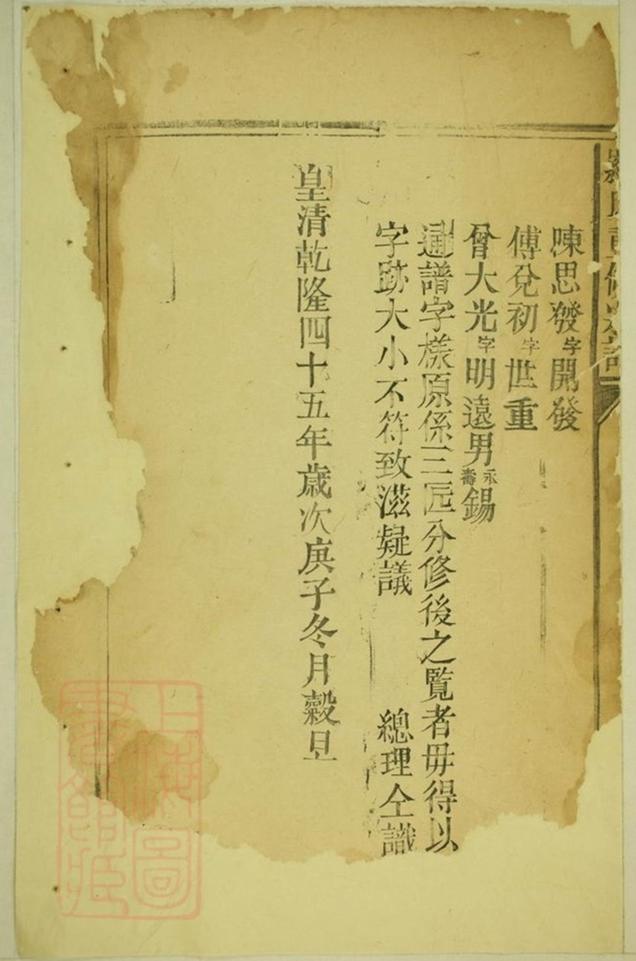 氏重修譜
陳思發字開發
傅兌初字世重
曾大光字明遠男永壽錫
通譜字樣原係三匠分修後之覽者毋得以
字跡大小不符致滋疑議　總理仝識
皇清乾隆四十五年歲次庚子冬月穀旦
上海圖
書館藏